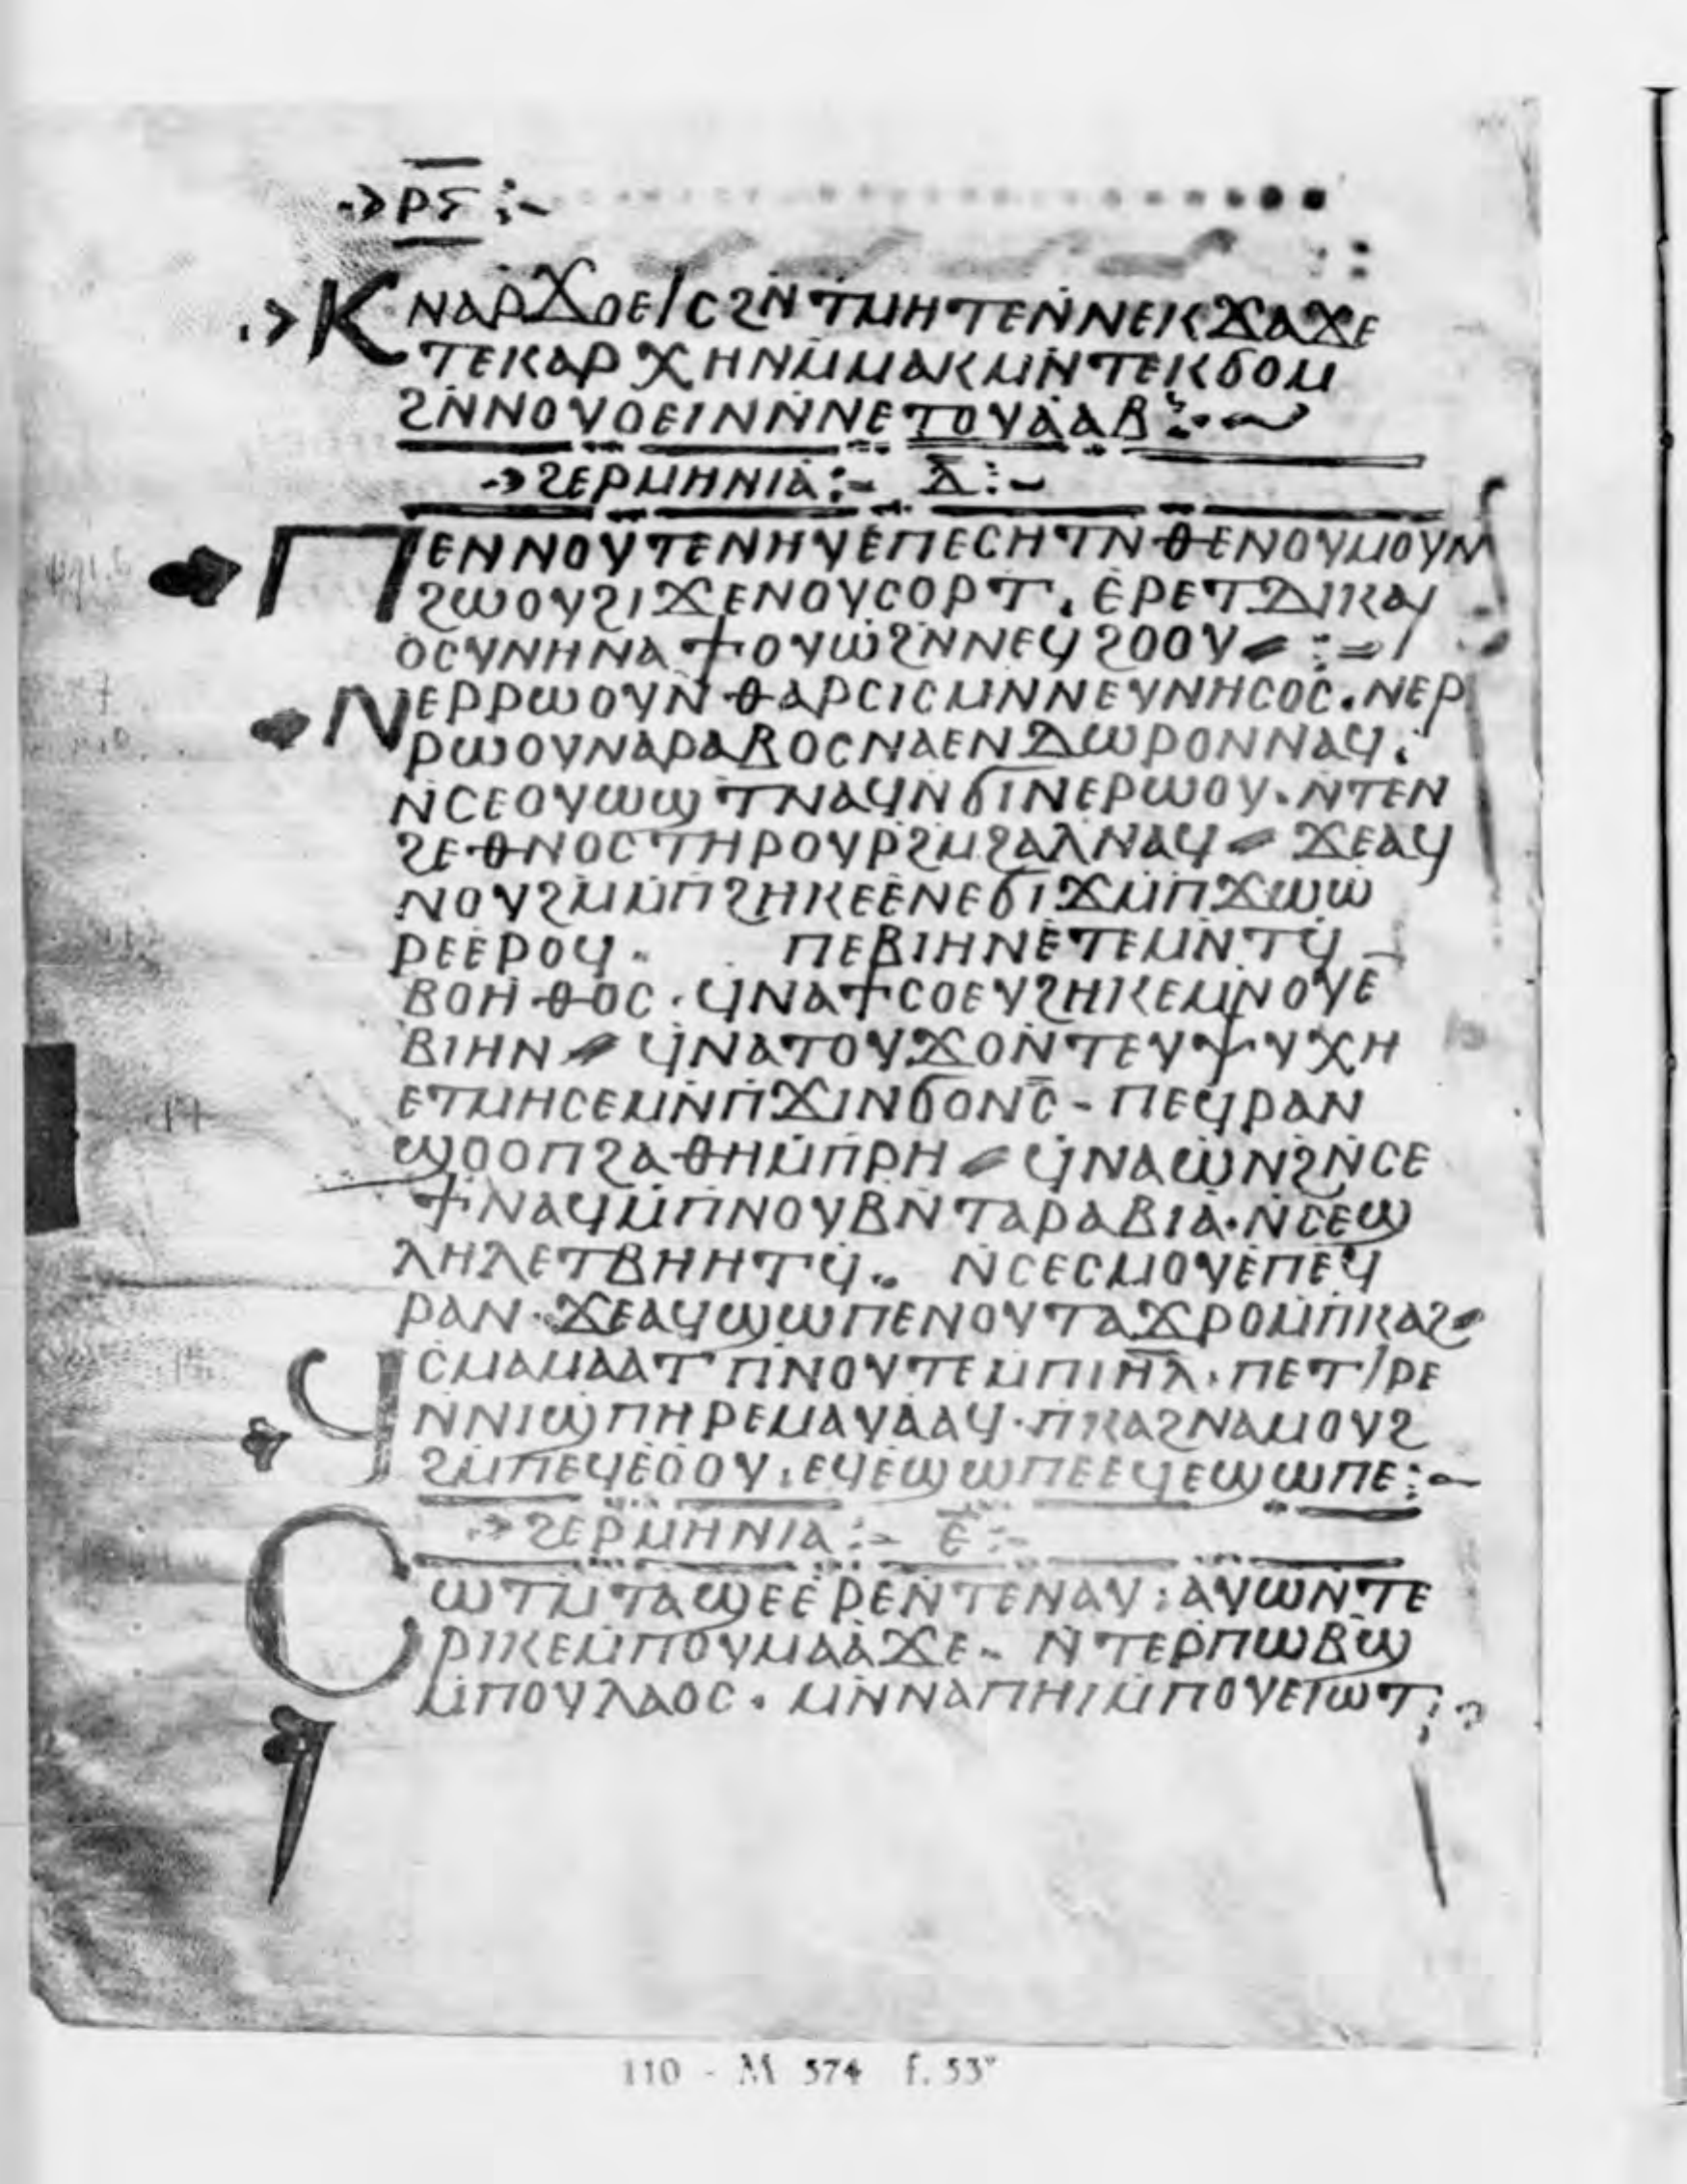 ·> ⲣ̅ⲋ̅ :~
·> ⲔⲚⲀⲢϪⲞⲈⲒⲤϨⲚ̇ⲦⲘⲎⲦⲈⲚ̇ⲚⲈⲔϪⲀϪⲈ
ⲦⲈⲔⲀⲢⲬⲎⲚⲘ̇ⲘⲀⲔⲘⲚ̇ⲦⲈⲔϬⲞⲘ
ϨⲚ̇ⲚⲞⲨⲞⲈⲒⲚⲚ̇ⲚⲈⲦⲞⲨⲀ̇ⲀⲂ :·~
·> ϨⲈⲢⲘⲎⲚⲒⲀ̇ :~ Ⲇ̅ :~
ⲠⲈⲚⲚⲞⲨⲦⲈⲚⲎⲨⲈ̇ⲠⲈⲤⲎⲦⲚ̇ⲐⲈⲚⲞⲨⲘⲞⲨⲚ
ϨⲰⲞⲨϨⲒϪⲈⲚⲞⲨⲤⲞⲢⲦ . Ⲉ̇ⲢⲈⲦⲆⲒⲔⲀⲒ
ⲞⲤⲨⲚⲎⲚⲀϮⲞⲨⲰ̇ϨⲚ̇ⲚⲈϤϨⲞⲞⲨ :=
ⲚⲈⲢⲢⲰⲞⲨⲚ̇ⲐⲀⲢⲤⲒⲤⲘⲚ̇ⲚⲈⲨⲚⲎⲤⲞⲤ . ⲚⲈⲢ
ⲢⲰⲞⲨⲚⲀⲢⲀⲂⲞⲤⲚⲀⲈⲚⲆⲰⲢⲞⲚⲚⲀϤ .
Ⲛ̇ⲤⲈⲞⲨⲰϢⲦⲚⲀϤⲚ̇ϬⲒⲚⲈⲢⲰⲞⲨ . Ⲛ̇ⲦⲈⲚ
ϨⲈⲐⲚⲞⲤⲦⲎⲢⲞⲨⲢ̇ϨⲘ̇ϨⲀⲖⲚⲀϤ ⸗ ϪⲈⲀϤ
ⲚⲞⲨϨⲘ̇Ⲙ̇ⲠϨⲎⲔⲈⲈ̇ⲚⲈϬⲒϪⲘ̇ⲠϪⲰⲰ̇
ⲢⲈⲈ̇ⲢⲞϤ . ⲠⲈⲂⲒⲎⲚⲈ̇ⲦⲈⲘⲚ̇ⲦϤ̇
ⲂⲞⲎⲐⲞⲤ . ϤⲚⲀϮⲤⲞⲈⲨϨⲎⲔⲈⲘⲚ̇ⲞⲨⲈ
ⲂⲒⲎⲚ ⸗ ϤⲚⲀⲦⲞⲨϪⲞⲚ̇ⲦⲈⲨⲮⲨⲬⲎ
ⲈⲦⲘⲎⲤⲈⲘⲚ̇Ⲡ̇ϪⲒⲚϬⲞⲚⲤ̅ - ⲠⲈϤⲢⲀⲚ
ϢⲞⲞⲠϨⲀⲐⲎⲘ̇Ⲡ̇ⲢⲎ ⸗ ϤⲚⲀⲰ̇ⲚϨⲚ̇ⲤⲈ
ϮⲚⲀϤⲘ̇Ⲡ̇ⲚⲞⲨⲂⲚ̇ⲦⲀⲢⲀⲂⲒⲀ̇ . Ⲛ̇ⲤⲈϢ
ⲖⲎⲖⲈⲦⲂⲎⲎⲦϤ̇ .. Ⲛ̇ⲤⲈⲤⲘⲞⲨⲈ̇ⲠⲈϤ
ⲢⲀⲚ . ϪⲈⲀϤϢⲰⲠⲈⲚⲞⲨⲦⲀϪⲢⲞⲘ̇Ⲡ̇ⲔⲀϨ
ϤⲤⲘⲀⲘⲀⲀⲦⲠ̇ⲚⲞⲨⲦⲈⲘ̇ⲠⲒⲎ̅Ⲗ . ⲠⲈⲦⲒⲢⲈ
ⲚⲚⲒϢⲠⲎⲢⲈⲘⲀⲨⲀ̇ⲀϤ . Ⲡ̇ⲔⲀϨⲚⲀⲘⲞⲨϨ
ϨⲘ̇ⲠⲈϤⲈ̇ⲞⲞⲨ . ⲈϤⲈϢⲰⲠⲈⲈϤⲈϢⲰⲠⲈ :~
·> ϨⲈⲢⲘⲎⲚⲒⲀ :~ Ⲉ̅ :~
ⲤⲰⲦⲘ̇ⲦⲀϢⲈⲈ̇ⲢⲈⲚ̇ⲦⲈⲚⲀⲨ : ⲀⲨⲰⲚ̇ⲦⲈ
ⲢⲒⲔⲈⲘ̇ⲠⲞⲨⲘⲀⲀ̇ϪⲈ - Ⲛ̇ⲦⲈⲢ̇ⲠⲰⲂϢ
Ⲙ̇ⲠⲞⲨⲖⲀⲞⲤ . ⲘⲚ̇ⲚⲀⲠⲎⲒⲘ̇ⲠⲞⲨⲈⲒⲰⲦ :
110 - M 574 f. 53ᵛ